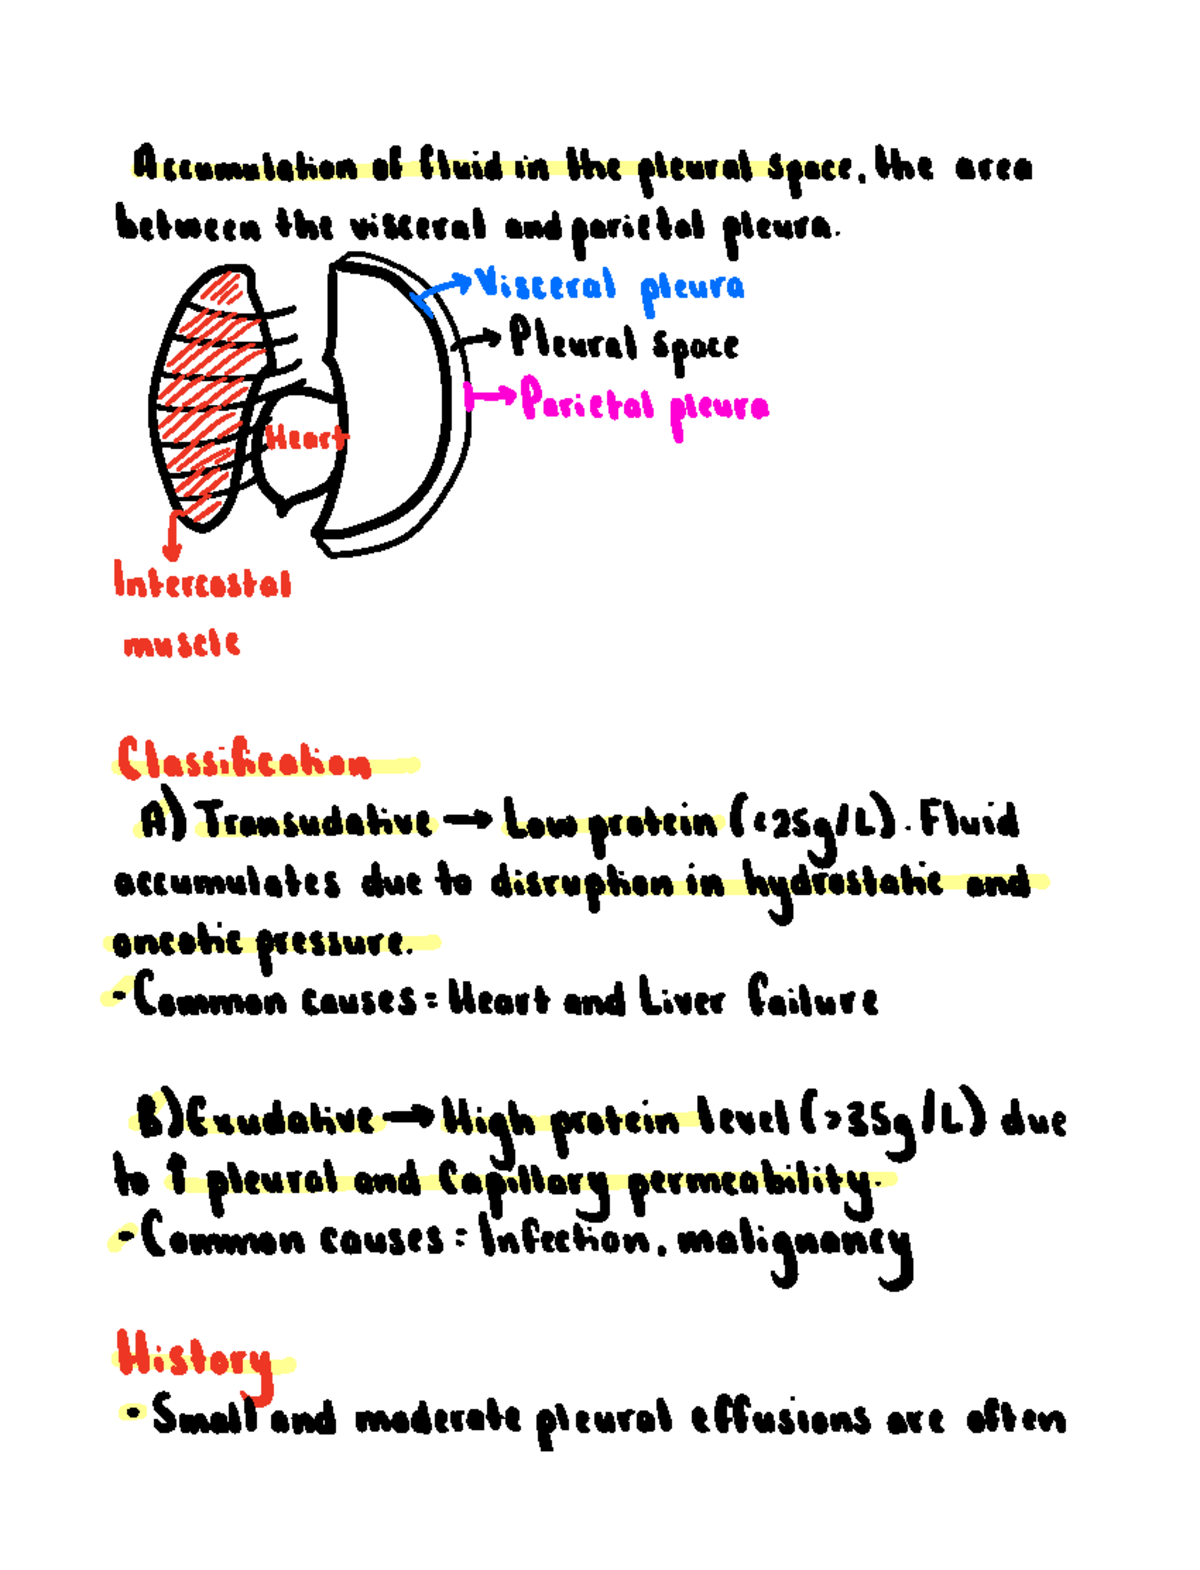 Accumulation of fluid in the pleural space, the area
between the visceral and parietal pleura.
Visceral pleura
Pleural space
Parietal pleura
Heart
Intercostal
muscle
Classification
A) Transudative → Low protein (<25g/L). Fluid
accumulates due to disruption in hydrostatic and
oncotic pressure.
- Common causes = Heart and Liver failure
B) Exudative → High protein level (>35g/L) due
to ↑ pleural and Capillary permeability.
- Common causes = Infection, malignancy
History
• Small and moderate pleural effusions are often